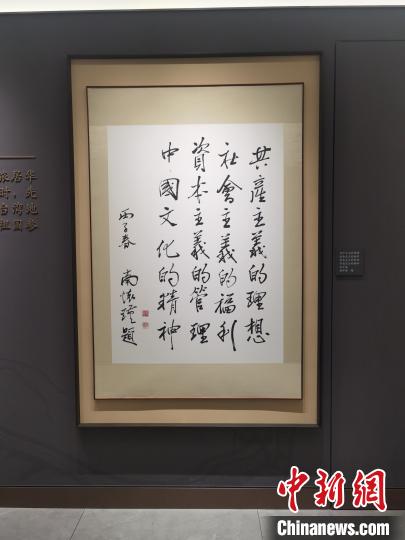 旅居华
时，先
台湾地
共產主義的理想
社會主義的福利
資本主義的管理
中國文化的精神
丙子春 南懷瑾題
中新网
Chinanews.com